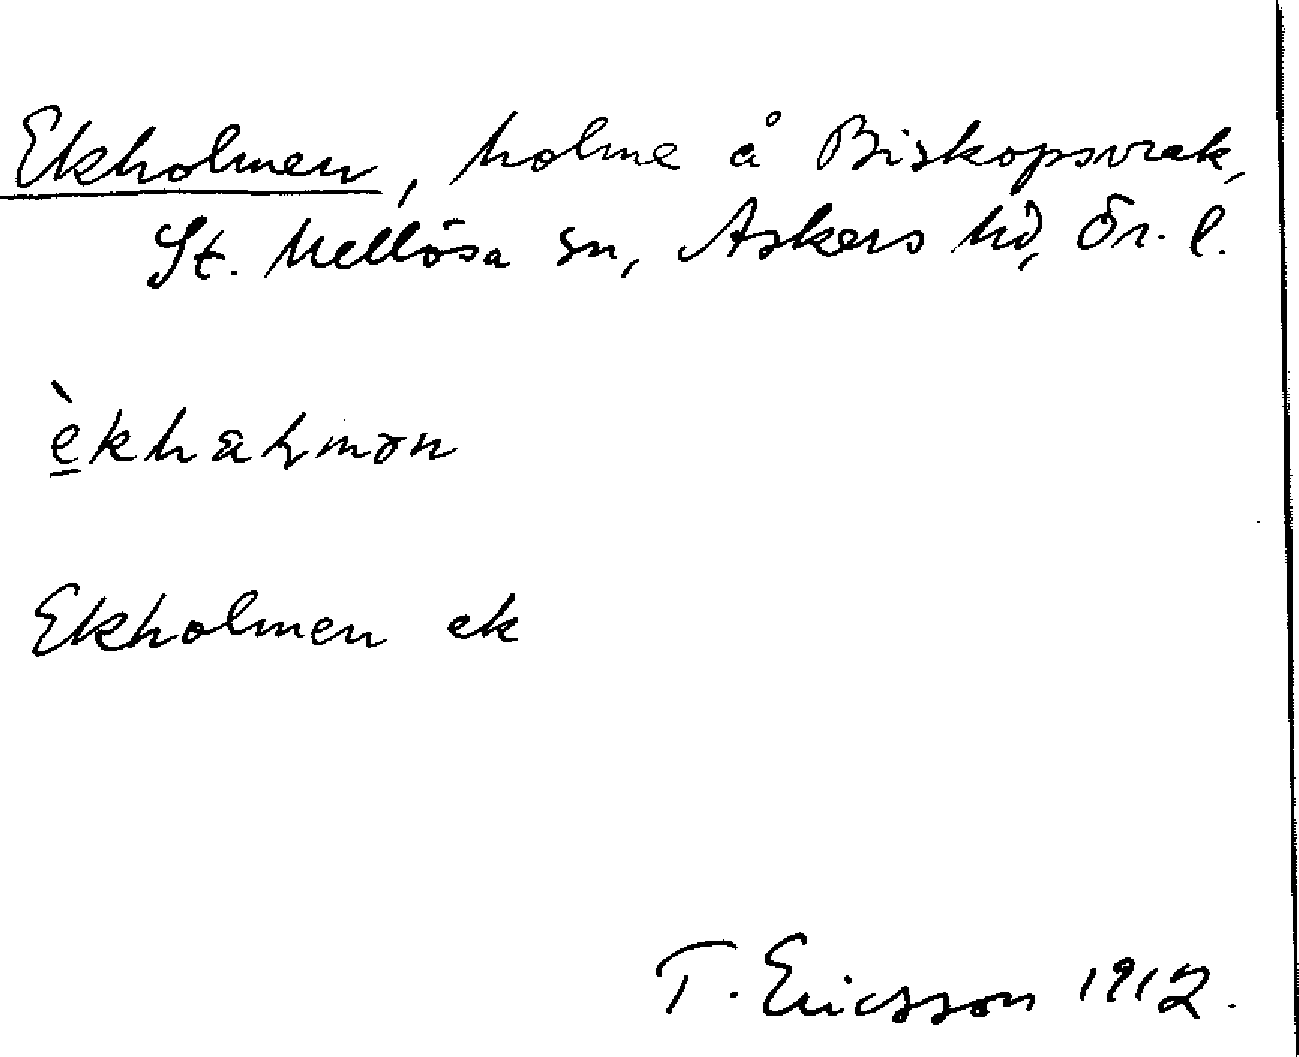 Ekholmen, holme å Biskopsvrak,
St. Mellösa sn, Askers hd, Ör. l.
èkhaɫmən
Ekholmen ek
T. Ericsson 1912.